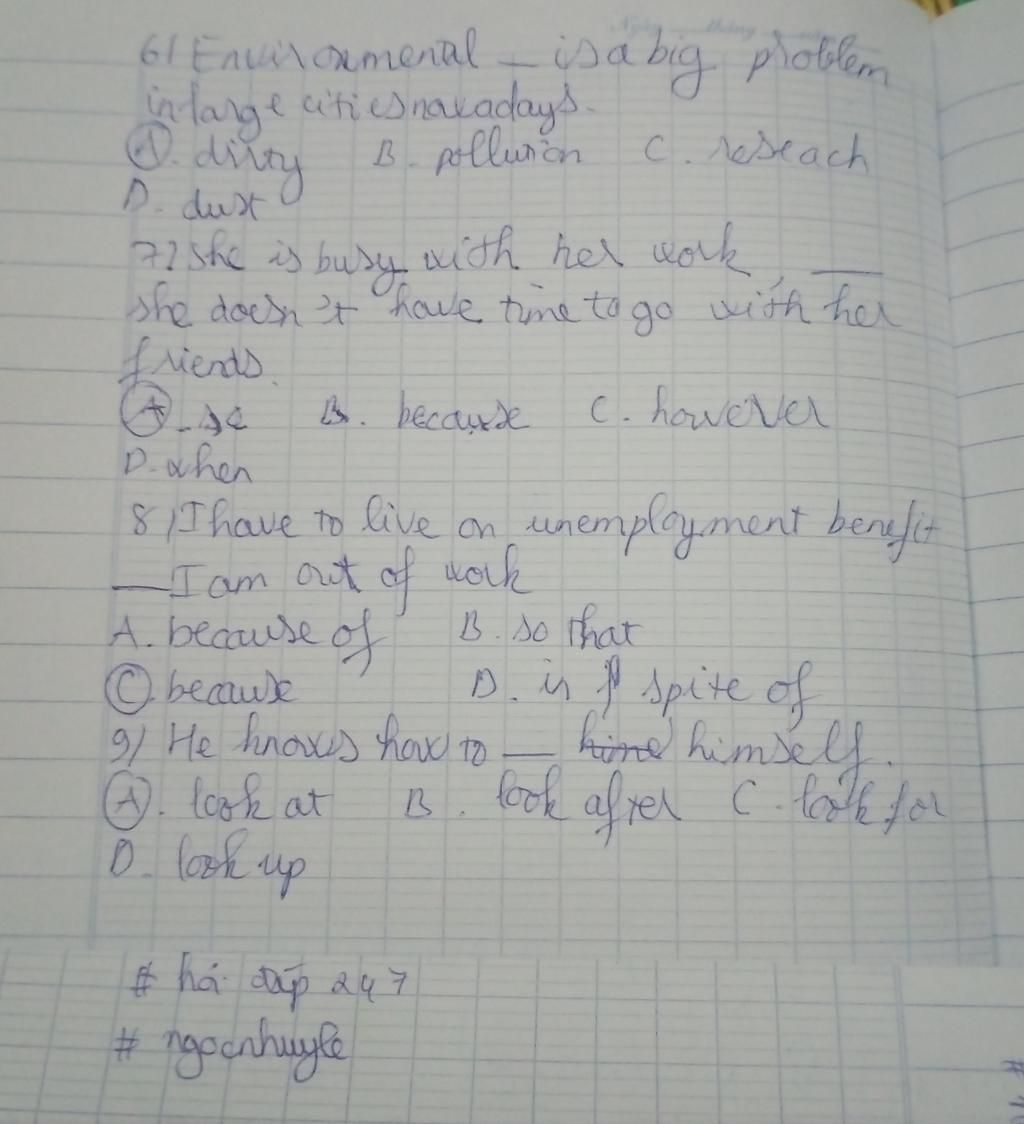 6) Environmenal _ is a big problem
in large cities nowadays.
A. dirty B. pollution C. reseach
D. dust
7) she is busy with her work, __
she doesn't have time to go with her
friends.
A. so B. because C. however
D. when
8) I have to live on unemployment benefit
__ I am out of work
A. because of B. so that
C. because D. in spite of
9) He knows how to __ himself.
A. look at B. look after C. look for
D. look up
# hỏi đáp 247
# ngocnhuyle